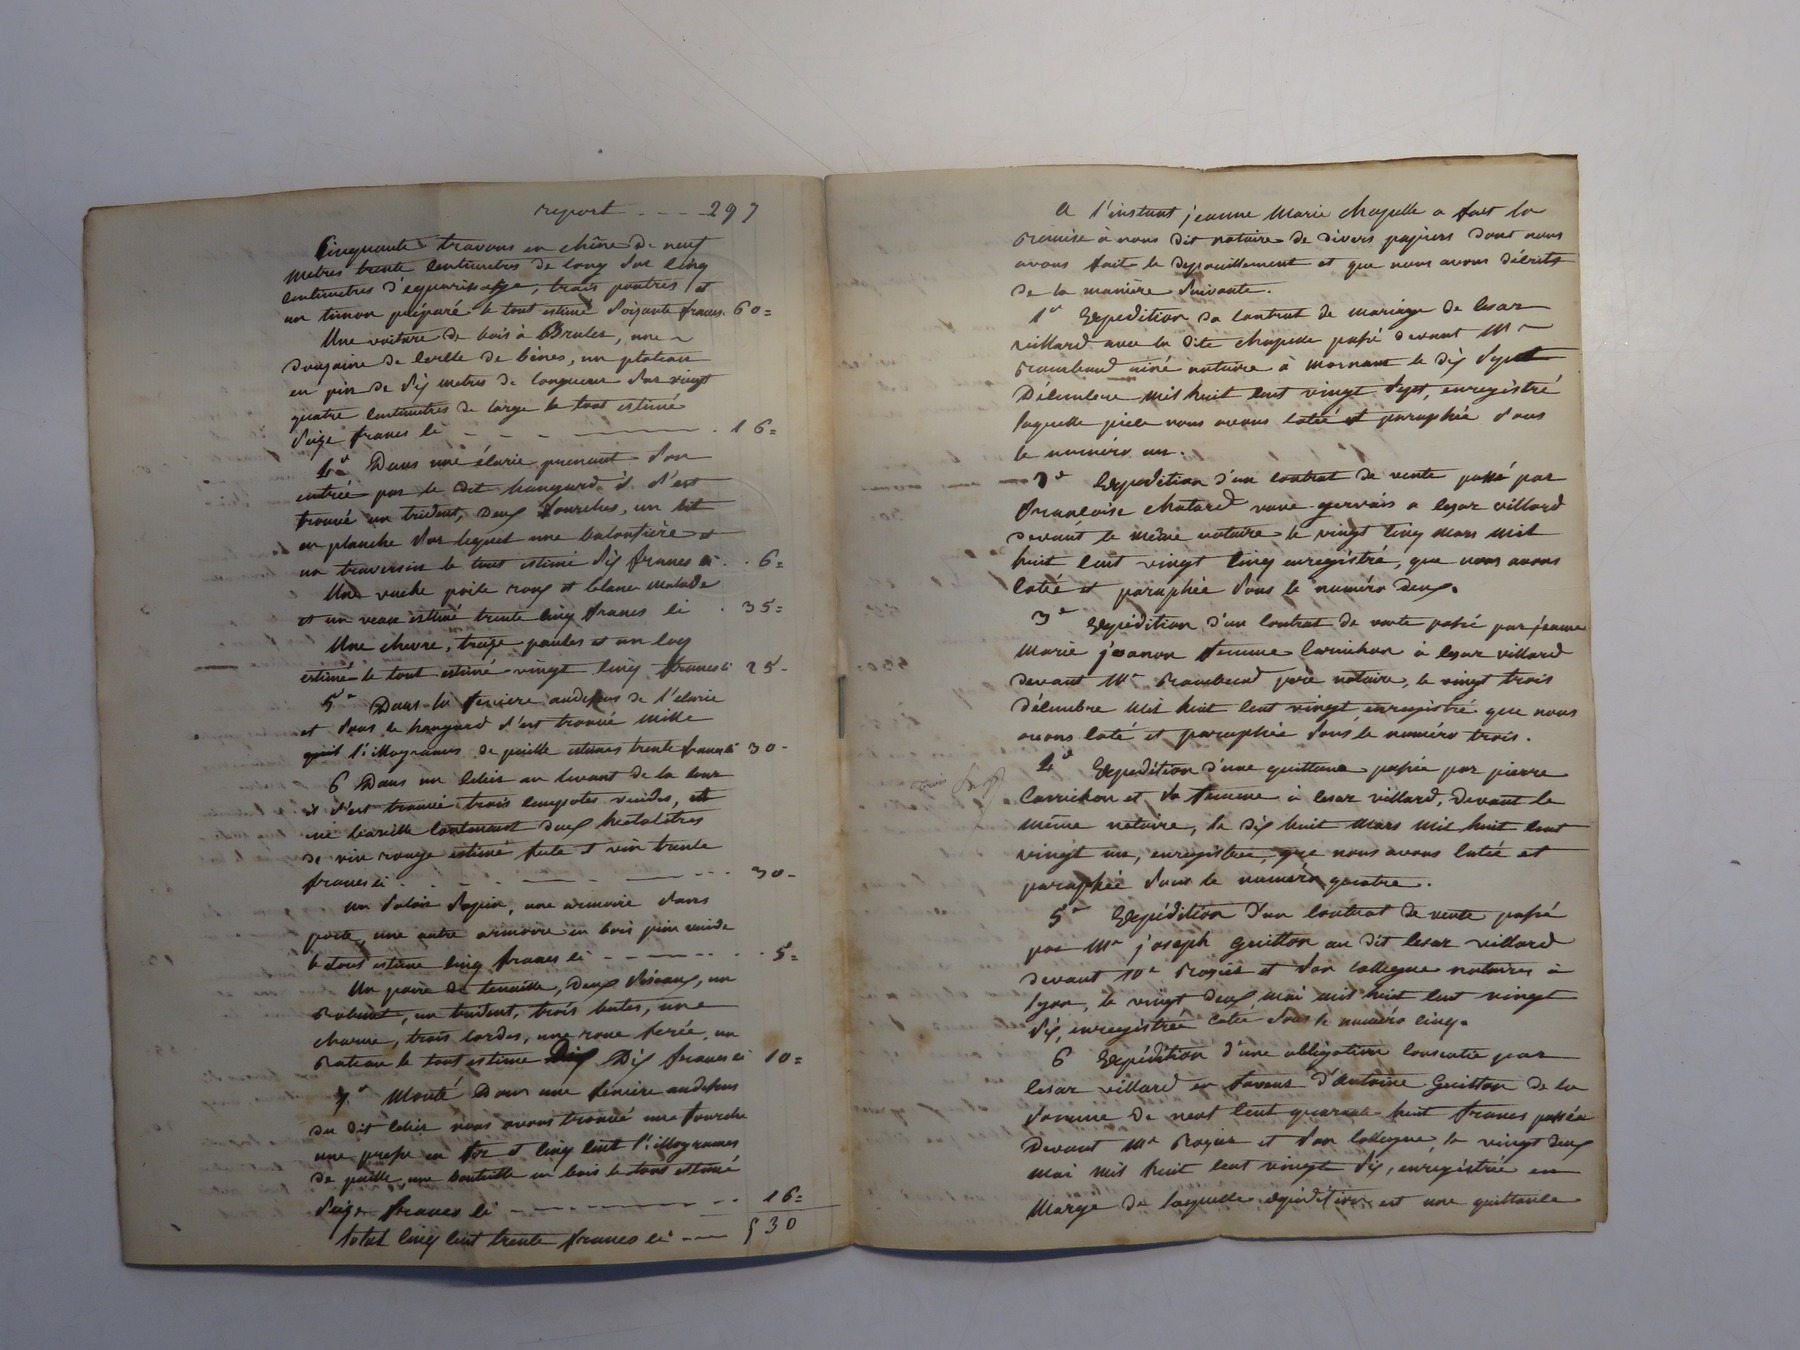 report - - - - 297
Cinquante travons en chêne de neuf
metres trente centimetres de long sur cinq
centimetres d'equarissage, trois poutres et
un timon préparé le tout estimé soixante francs. 60=
Une voiture de bois à Bruler, une
douzaine de de bènes, un plateau
en pin de dix metres de longueur sur vingt
quatre centimetres de large le tout estimé
seize francs ci - - - . 16=
4° Dans une élurie prenant son
entrée par le dit hangard il s'est
trouvé un trident, deux fourches, un lit
en planche sur lequel une baloufière et
un traversin le tout estimé six francs ci . . 6=
Une vache poile roux et blanc malade
et un veau estimé trente cinq francs ci . 35=
Une chevre, treize poules et un coq
estimé le tout estimé vingt cinq francs ci 25-
5° Dans la feniere audessus de l'elurie
et sous le hangard s'est trouvé mille
killogrames de paille estimés trente francs ci 30-
6 Dans un celier au levant de la cour
il s'est trouvé trois vuides,
contenant deux hectolitres
de vin rouge estimé fute et vin trente
francs ci - - - 30-
un saloir sapin, une armoire sans
porte, une autre armoire en bois pin vuide
le tout estimé cinq francs ci - - - 5=
Un paire de tenaille, deux ciseaux, un
Rabot, un trident, trois bentes, une
charrue, trois cordes, une roue ferée, un
Rateau le tout estimé Dix Dix francs ci 10=
7° Monté Dans une féniere audessus
du dit celier nous avons trouvé une fourche
une presse en fer et cinq cent killogrames
de paille, une bouteille en bois le tout estimé
seize francs ci - - - 16=
total cinq cent trente francs ci - - 530
A l'instant jeanne Marie chapelle a fait la
Remise à nous dit notaire de divers papiers dont nous
avons fait le depouillement et que nous avons décrits
de la manière suivante.
1° Expedition du contrat de mariage de Cesar
villard avec la dite chapelle passé devant Me
Rambaud ainé notaire à Mornant le dix sept
Décembre mil huit cent vingt sept, enregistré
laquelle piece nous avons cotée et paraphée sous
le numéro un.
2° Expedition d'un contrat de vente passé par
Françoise chatard veuve gervais a Cesar villard
devant le même notaire le vingt cinq mars mil
huit cent vingt cinq enregistré, que nous avons
cotée et paraphée sous le numéro deux.
3° Expédition d'un contrat de vente passé par jeanne
Marie joanon femme Carrichon à Cesar villard
devant Me Rambaud père notaire, le vingt trois
décembre mil huit cent vingt enregistré que nous
avons coté et paraphée sous le numéro trois.
4° Expedition d'une quittance passée par pierre
Carrichon et sa femme à Cesar villard, devant le
même notaire, le dix huit mars mil huit cent
vingt un, enregistrée, que nous avons cotée et
paraphée sous le numéro quatre.
5° Expédition d'un contrat de vente passé
par Mr joseph Guitton au dit Cesar villard
devant Me et son collegue notaires à
Lyon, le vingt deux mai mil huit cent vingt
six, enregistrée cotée sous le numéro cinq.
6 Expédition d'une obligation consentie par
Cesar villard en faveur d'Antoine Guitton de la
somme de neuf cent quarante huit francs passée
Devant Me et son collegue le vingt deux
mai mil huit cent vingt six, enregistrée en
Marge de laquelle expédition est une quittance